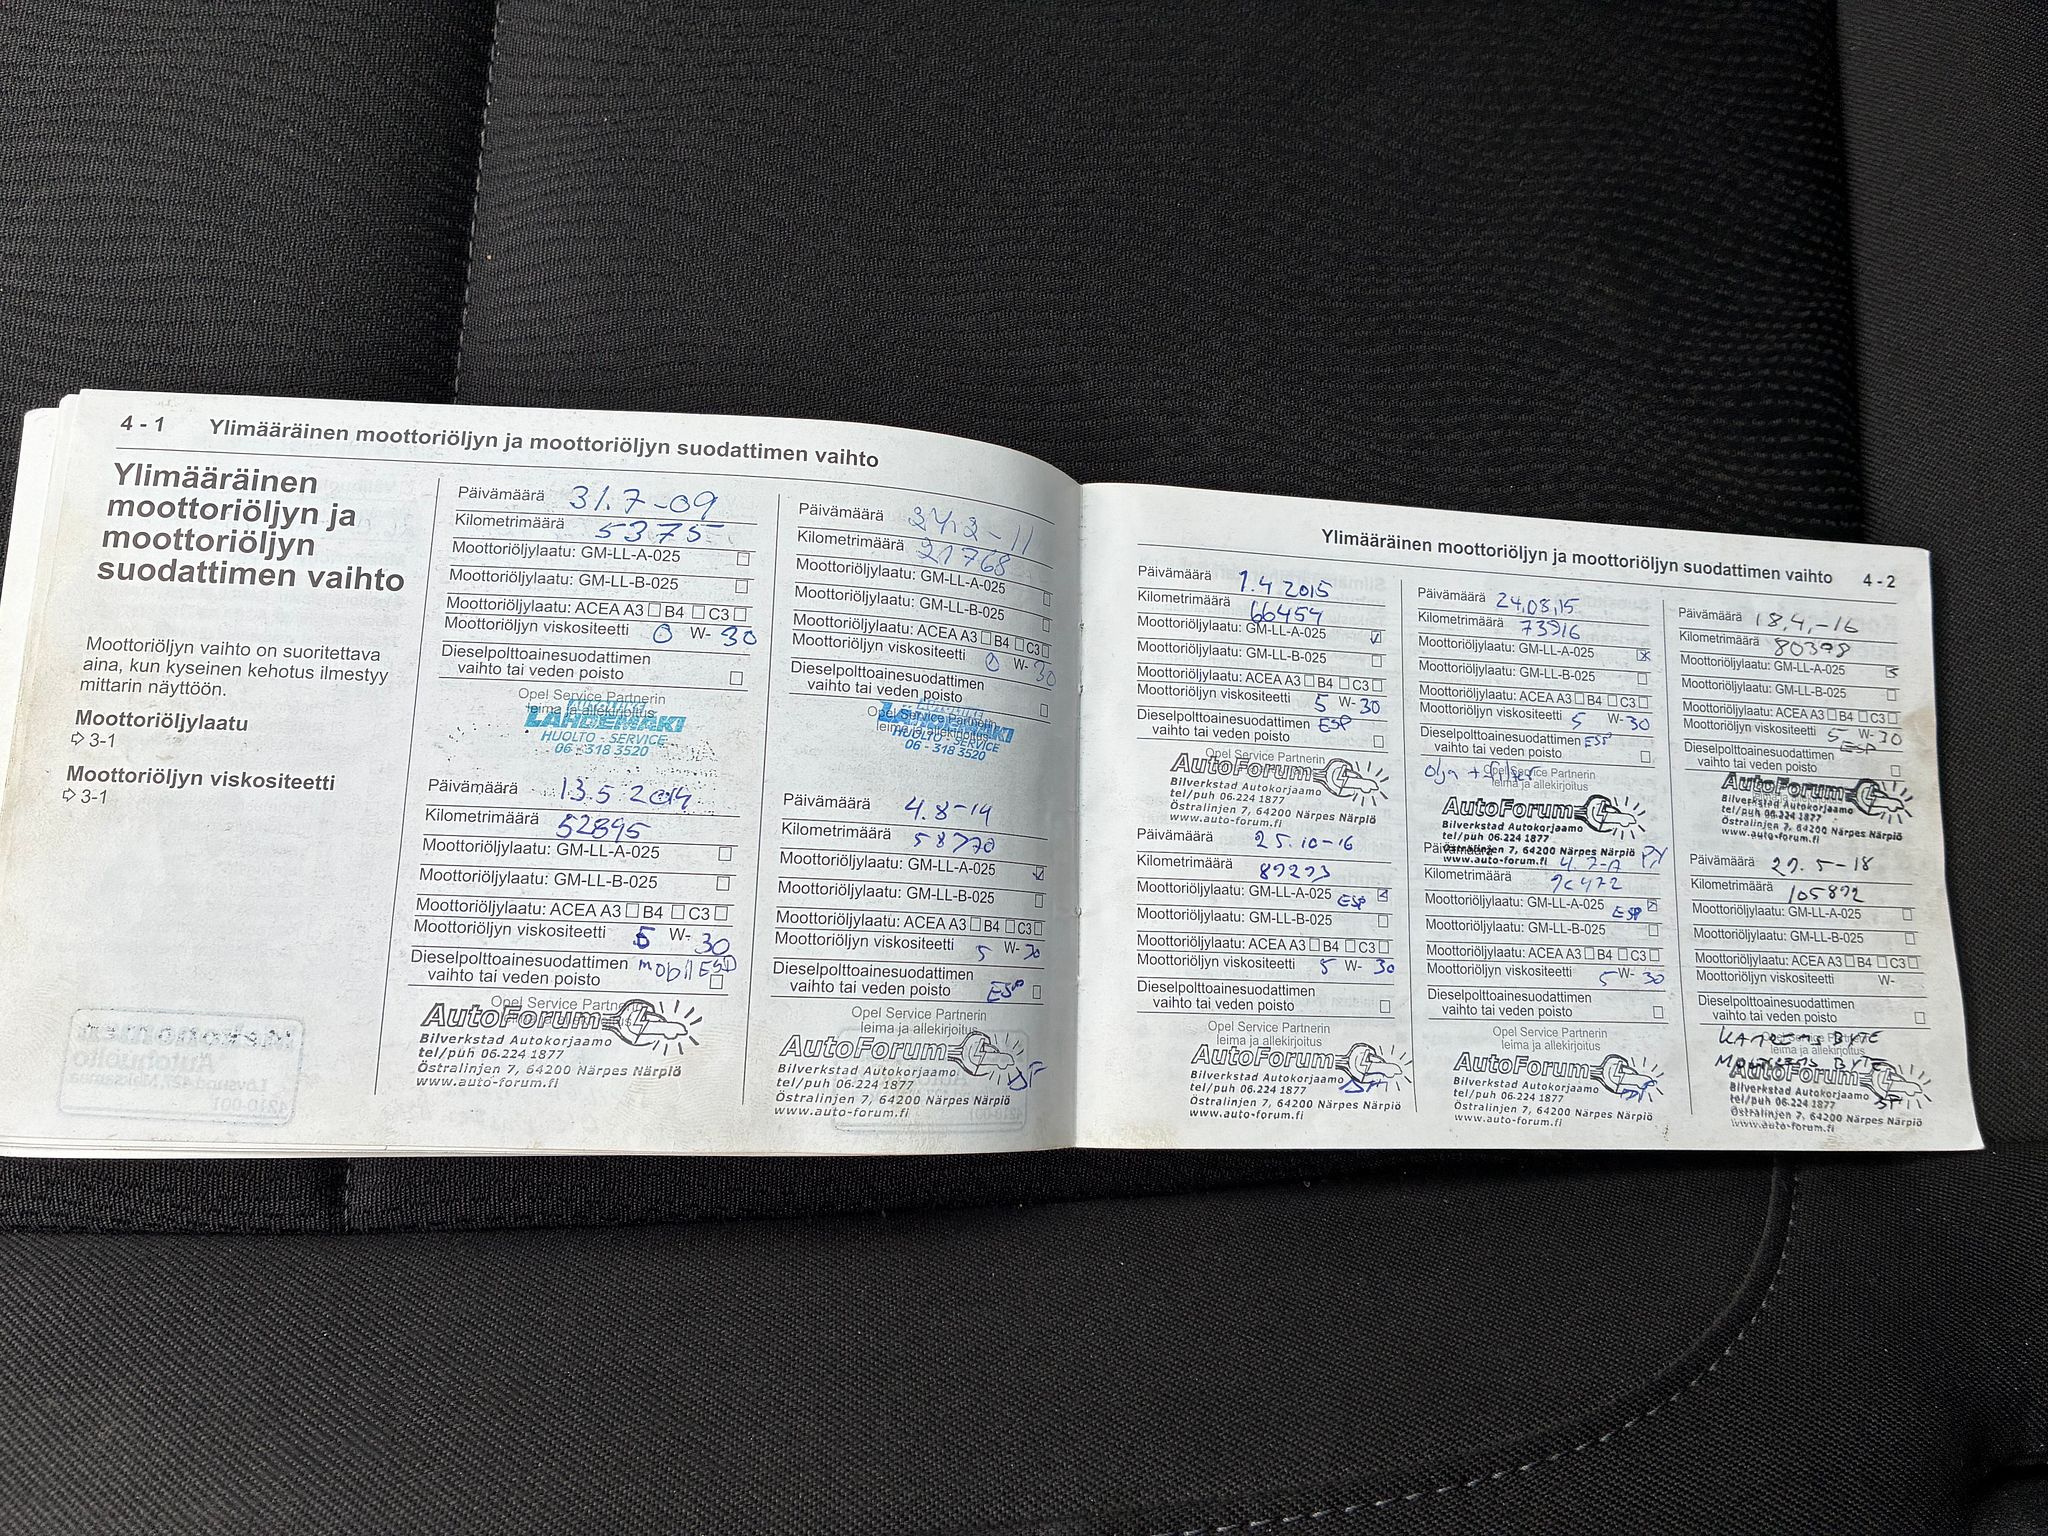 4 - 1 Ylimääräinen moottoriöljyn ja moottoriöljyn suodattimen vaihto
Ylimääräinen
moottoriöljyn ja
moottoriöljyn
suodattimen vaihto
Moottoriöljyn vaihto on suoritettava
aina, kun kyseinen kehotus ilmestyy
mittarin näyttöön.
Moottoriöljylaatu
⇨ 3-1
Moottoriöljyn viskositeetti
⇨ 3-1
Päivämäärä 31.7-09
Kilometrimäärä 5375
Moottoriöljylaatu: GM-LL-A-025
Moottoriöljylaatu: GM-LL-B-025
Moottoriöljylaatu: ACEA A3 B4 C3
Moottoriöljyn viskositeetti 0 W- 30
Dieselpolttoainesuodattimen
vaihto tai veden poisto
Opel Service Partnerin
leima ja allekirjoitus
LAHDEMÄKI
HUOLTO - SERVICE
06 - 318 3520
Päivämäärä 13.5.2014
Kilometrimäärä 52895
Moottoriöljylaatu: GM-LL-A-025
Moottoriöljylaatu: GM-LL-B-025
Moottoriöljylaatu: ACEA A3 B4 C3
Moottoriöljyn viskositeetti 5 W- 30
Dieselpolttoainesuodattimen mobil ESP
vaihto tai veden poisto
Opel Service Partnerin
AutoForum
Bilverkstad Autokorjaamo
tel/puh 06-224 1877
Östralinjen 7, 64200 Närpes Närpiö
www.auto-forum.fi
Päivämäärä 24.2-11
Kilometrimäärä 21768
Moottoriöljylaatu: GM-LL-A-025
Moottoriöljylaatu: GM-LL-B-025
Moottoriöljylaatu: ACEA A3 B4 C3
Moottoriöljyn viskositeetti 0 W- 30
Dieselpolttoainesuodattimen
vaihto tai veden poisto
Opel Service Partnerin
leima ja allekirjoitus
LAHDEMÄKI
HUOLTO - SERVICE
06 - 318 3520
Päivämäärä 4.8-14
Kilometrimäärä 58770
Moottoriöljylaatu: GM-LL-A-025
Moottoriöljylaatu: GM-LL-B-025
Moottoriöljylaatu: ACEA A3 B4 C3
Moottoriöljyn viskositeetti 5 W- 30
Dieselpolttoainesuodattimen
vaihto tai veden poisto ESP
Opel Service Partnerin
leima ja allekirjoitus
AutoForum
Bilverkstad Autokorjaamo
tel/puh 06-224 1877
Östralinjen 7, 64200 Närpes Närpiö
www.auto-forum.fi
Ylimääräinen moottoriöljyn ja moottoriöljyn suodattimen vaihto 4 - 2
Päivämäärä 1.4 2015
Kilometrimäärä 66454
Moottoriöljylaatu: GM-LL-A-025
Moottoriöljylaatu: GM-LL-B-025
Moottoriöljylaatu: ACEA A3 B4 C3
Moottoriöljyn viskositeetti 5 W- 30
Dieselpolttoainesuodattimen ESP
vaihto tai veden poisto
Opel Service Partnerin
AutoForum
Bilverkstad Autokorjaamo
tel/puh 06-224 1877
Östralinjen 7, 64200 Närpes Närpiö
www.auto-forum.fi
Päivämäärä 25.10-16
Kilometrimäärä 87273
Moottoriöljylaatu: GM-LL-A-025 ESP
Moottoriöljylaatu: GM-LL-B-025
Moottoriöljylaatu: ACEA A3 B4 C3
Moottoriöljyn viskositeetti 5 W- 30
Dieselpolttoainesuodattimen
vaihto tai veden poisto
Opel Service Partnerin
leima ja allekirjoitus
AutoForum
Bilverkstad Autokorjaamo
tel/puh 06-224 1877
Östralinjen 7, 64200 Närpes Närpiö
www.auto-forum.fi
Päivämäärä 24.08.15
Kilometrimäärä 73916
Moottoriöljylaatu: GM-LL-A-025
Moottoriöljylaatu: GM-LL-B-025
Moottoriöljylaatu: ACEA A3 B4 C3
Moottoriöljyn viskositeetti 5 W- 30
Dieselpolttoainesuodattimen ESP
vaihto tai veden poisto
Opel Service Partnerin
leima ja allekirjoitus
olja + filter
AutoForum
Bilverkstad Autokorjaamo
tel/puh 06-224 1877
Östralinjen 7, 64200 Närpes Närpiö
www.auto-forum.fi
Päivämäärä
Kilometrimäärä
Moottoriöljylaatu: GM-LL-A-025 ESP
Moottoriöljylaatu: GM-LL-B-025
Moottoriöljylaatu: ACEA A3 B4 C3
Moottoriöljyn viskositeetti 5 W- 30
Dieselpolttoainesuodattimen
vaihto tai veden poisto
Opel Service Partnerin
leima ja allekirjoitus
AutoForum
Bilverkstad Autokorjaamo
tel/puh 06-224 1877
Östralinjen 7, 64200 Närpes Närpiö
www.auto-forum.fi
Päivämäärä 18.4.-16
Kilometrimäärä 80398
Moottoriöljylaatu: GM-LL-A-025
Moottoriöljylaatu: GM-LL-B-025
Moottoriöljylaatu: ACEA A3 B4 C3
Moottoriöljyn viskositeetti 5 W- 30
Dieselpolttoainesuodattimen ESP
vaihto tai veden poisto
AutoForum
Bilverkstad Autokorjaamo
tel/puh 06-224 1877
Östralinjen 7, 64200 Närpes Närpiö
www.auto-forum.fi
Päivämäärä 27.5-18
Kilometrimäärä 105892
Moottoriöljylaatu: GM-LL-A-025
Moottoriöljylaatu: GM-LL-B-025
Moottoriöljylaatu: ACEA A3 B4 C3
Moottoriöljyn viskositeetti W-
Dieselpolttoainesuodattimen
vaihto tai veden poisto
KAMREMS BYTE
leima ja allekirjoitus
BYTE
AutoForum
Bilverkstad Autokorjaamo
tel/puh 06-224 1877
Östralinjen 7, 64200 Närpes Närpiö
www.auto-forum.fi